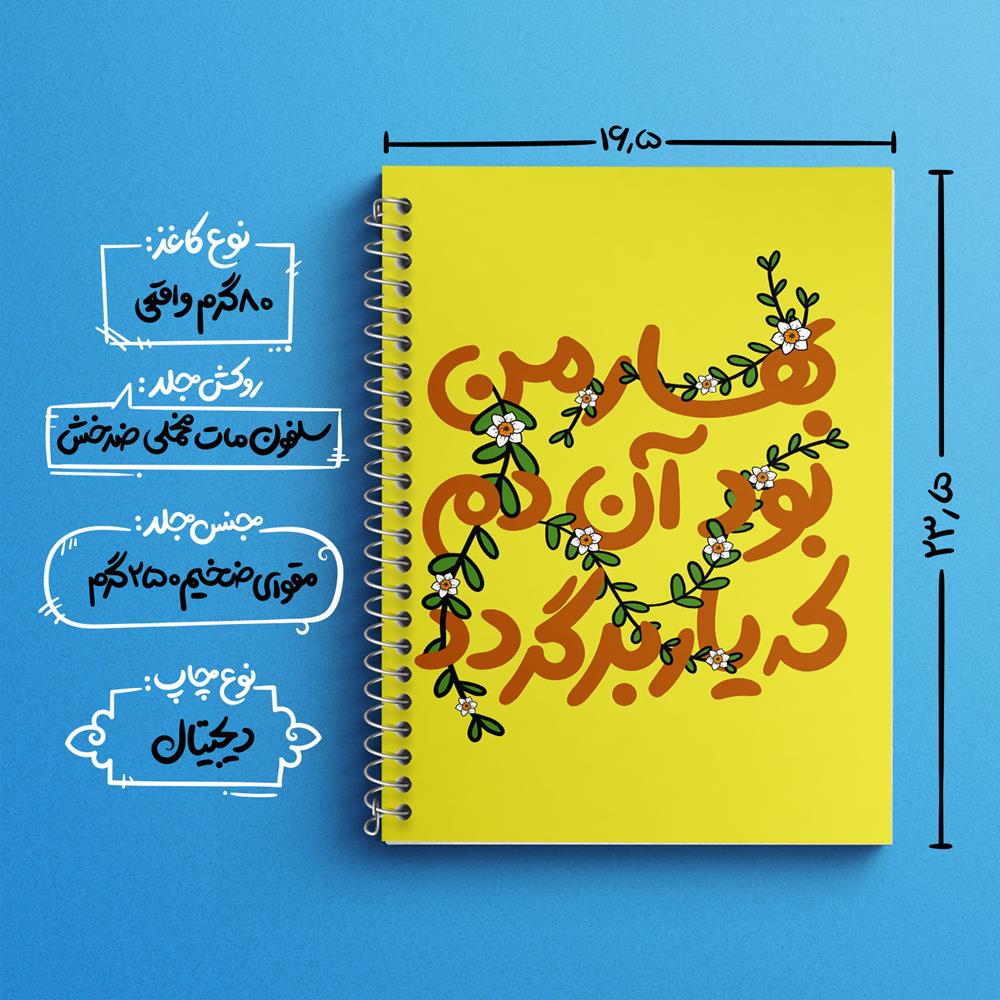 ۱۶٫۵
۲۳٫۵
نوع کاغذ:
۸۰گرم واقعی
روکش جلد:
سلفون مات مخملی ضدخش
جنس جلد:
مقوای ضخیم ۲۵۰گرم
نوع چاپ:
دیجیتال
بهار من
بود آن دم
که یار برگردد